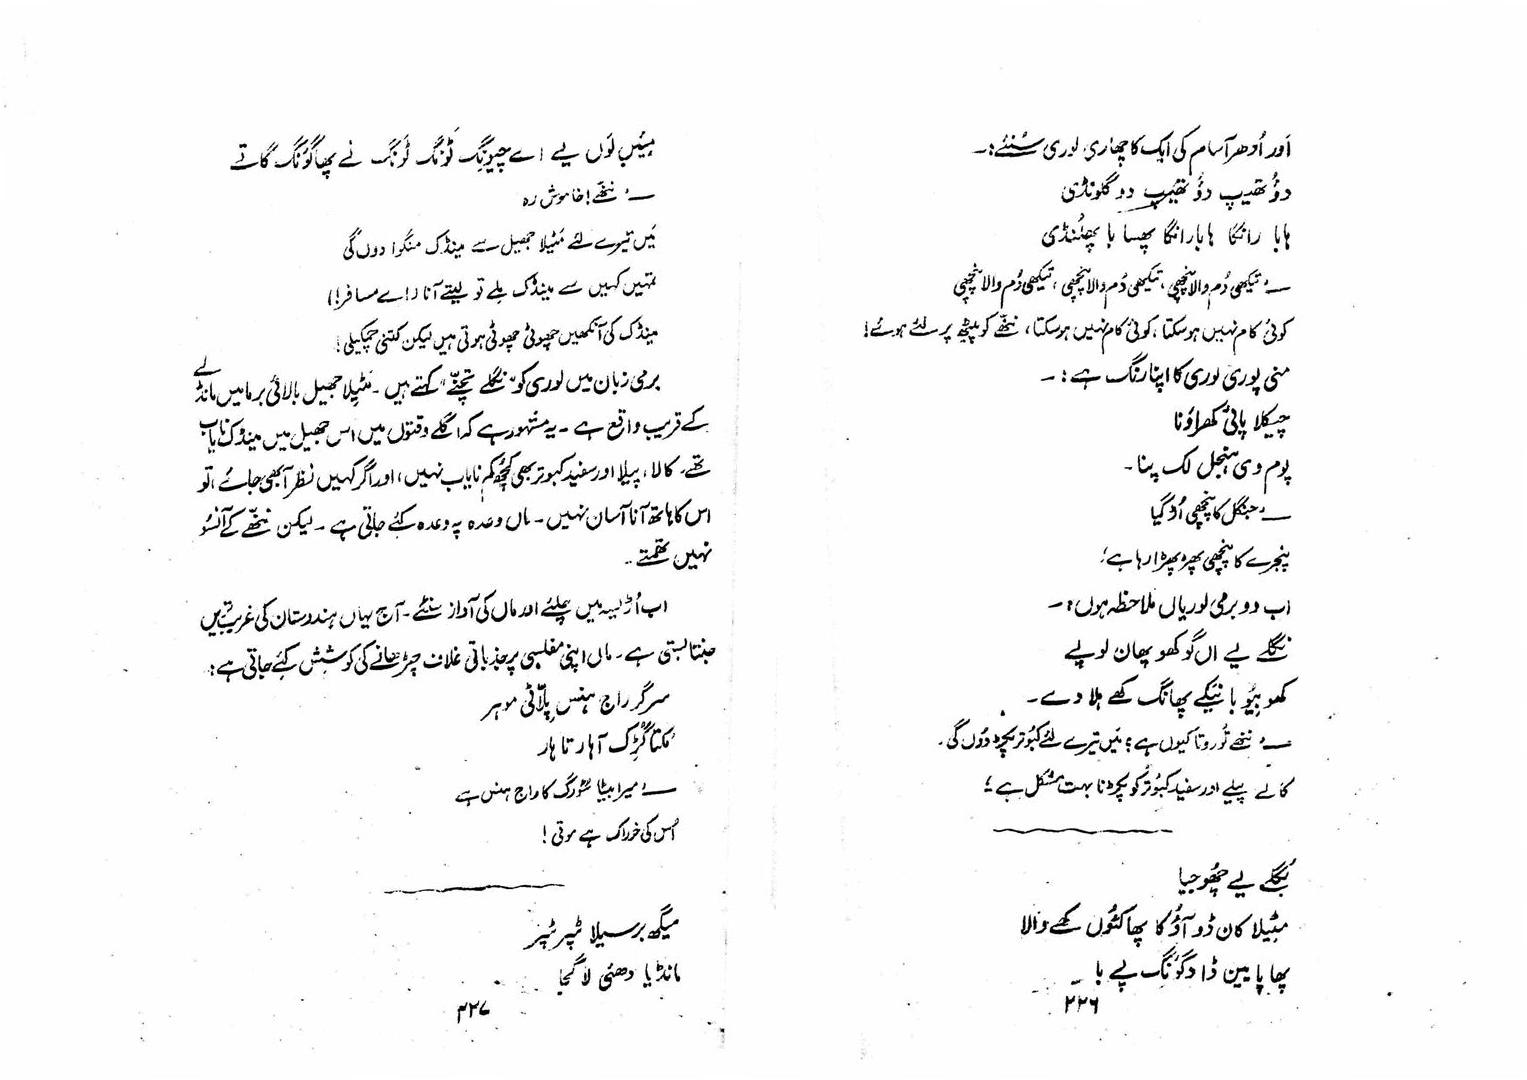 اَور اُدھر آسام کی ایک کاچھاری لوری سُنئے:۔
دؤُ تھیپ دؤُ تھیپ دو گلونڈی
ہابا رانگا ہابارانگا پھسا با پھلنڈی
—'تیکھی دُم والا پنچھی، تیکھی دُم والا پنچھی، تیکھی دُم والا پنچھی
کوئی کام نہیں ہوسکتا، کوئی کام نہیں ہوسکتا، ننھّے کو پیٹھ پر لئے ہوئے!
منی پوری لوری کا اپنا رنگ ہے:۔
چیکلا پائی کھراؤنا
پوم دی ہنجل لک پنا۔
—'جنگل کا پنچھی اُڑ گیا
پنجرے کا پنچھی پھڑ پھڑا رہا ہے؛
اب دو برمی لوریاں ملاحظہ ہوں:۔
نگلے یے اں گو کھو پھان لوپے
کھو بیُو با نیَکے پھانگ کھے ہلا دے۔
—'ننھے تُو روتا کیوں ہے؟ مَیں تیرے لئے کبُوتر پکڑ دُوں گی۔
کالے پیلے اور سفید کبُوتر کو پکڑنا بہت مشکل ہے؛
نگلے یے چھُو جیا
مٹیلا کان ڈو آؤ کا پھا کٹوں کھے والا
پھا پا یین ڈا دگونگ پے با۔
۲۲۶
بیُب لَوں یے اے چیونگ ٹونگ ٹرنگ نے پھاگونگ گاتے
—' ننھّے! خاموش رہ
مَیں تیرے لئے مَٹیلا جھیل سے مینڈک منگوا دوں گی
تمہیں کہیں سے مینڈک ملے تو لیتے آنا (اے مسافر!)
مینڈک کی آنکھیں چھوٹی چھوٹی ہوتی ہیں لیکن کتنی چمکیلی!
برمی زبان میں لوری کو "نگلے تچّھے" کہتے ہیں۔ مَٹیلا جھیل بالائی برما میں مانڈلے
کے قریب واقع ہے۔ یہ مشہور ہے کہ اگلے وقتوں میں اس جھیل میں مینڈک نایاب
تھے۔ کالا، پیلا اور سفید کبوتر بھی کچُھ کم نایاب نہیں، اور اگر کہیں نظر آ بھی جائے، تو
اس کا ہاتھ آنا آسان نہیں۔ ماں وعدہ پہ وعدہ کئے جاتی ہے۔ لیکن ننھّے کے آنسو
نہیں تھمتے۔
اب اُڑیسہ میں چلئے اور ماں کی آواز سنئے۔ آج یہاں ہندوستان کی غریب ترین
جنتا بستی ہے۔ ماں اپنی مفلسی پر جذباتی غلاف چڑھانے کی کوشش کئے جاتی ہے:
سرگر راج ہنس پلاّٹی موہر
مُکتا گُڑک آہار تا ہار
—'میرا بیٹا سؤرگ کا راج ہنس ہے
اُس کی خوراک ہے موتی!
میگھ برسیلا ٹپر ٹپر
مانڈیا دھئی لا گجا
۲۲۷